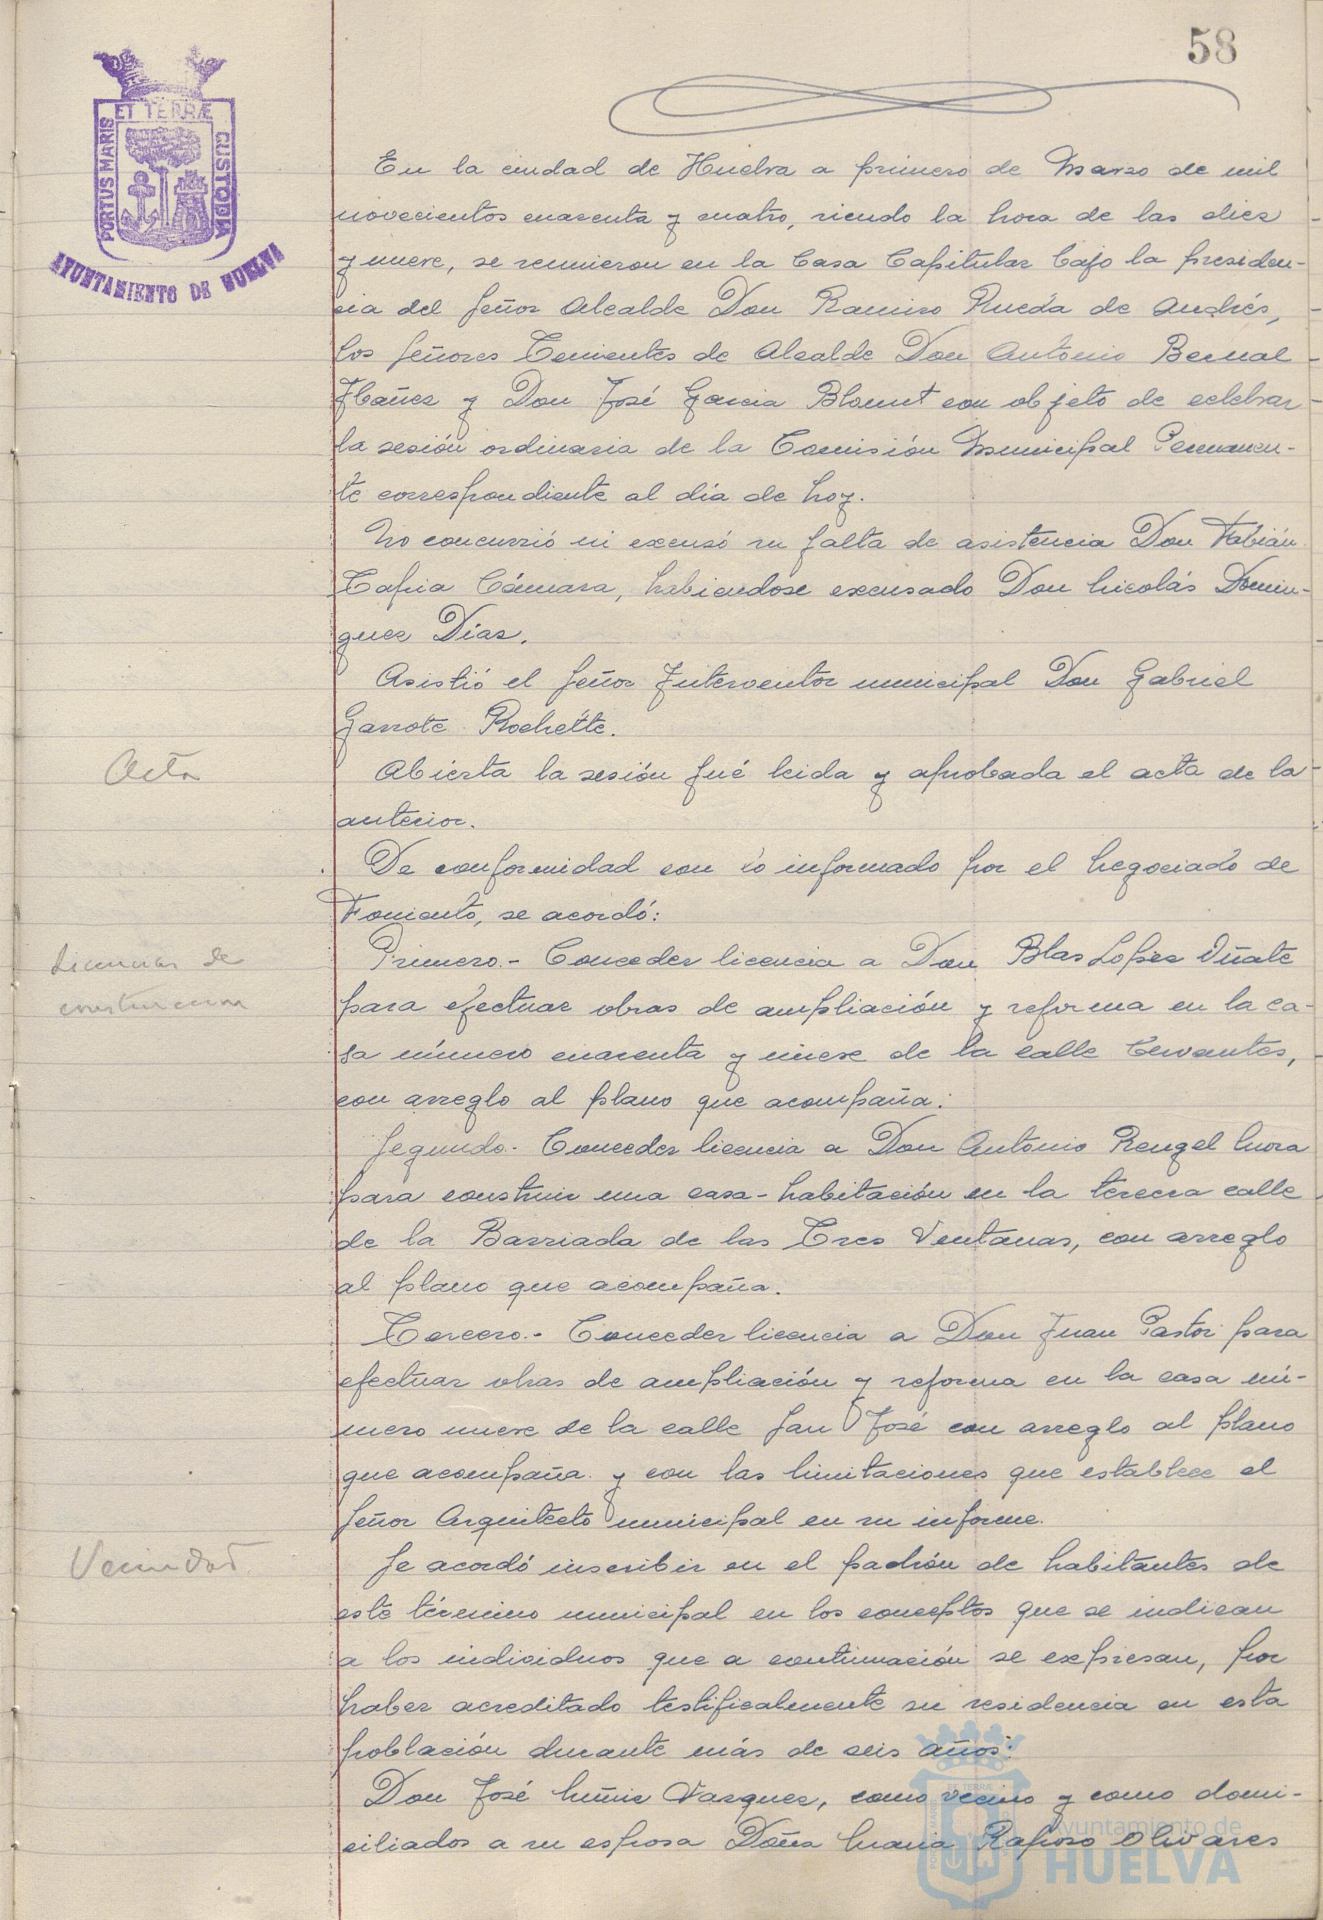 58
ET TERRÆ
PORTUS MARIS
CUSTODIA
AYUNTAMIENTO DE HUELVA
En la ciudad de Huelva a primero de Marzo de mil
novecientos cuarenta y cuatro, siendo la hora de las diez
y nueve, se reunieron en la Casa Capitular bajo la presiden-
cia del Señor Alcalde Don Ramiro Rueda de Andrés,
los Señores Tenientes de Alcalde Don Antonio Bernal
Ibañez y Don José Garcia Blount con objeto de celebrar
la sesión ordinaria de la Comisión Municipal Permanen-
te correspondiente al día de hoy.
No concurrió ni excusó su falta de asistencia Don Fabián
Tapia Cámara, habiendose excusado Don Nicolás Domin-
guez Díaz.
Asistió el Señor Interventor municipal Don Gabriel
Garrote Rochette.
Acta
Abierta la sesión fué leida y aprobada el acta de la
anterior.
De conformidad con lo informado por el Negociado de
Fomento, se acordó:
Licencias de
construccion
Primero.- Conceder licencia a Don Blas Lopez Oñate
para efectuar obras de ampliación y reforma en la ca-
sa número cuarenta y nueve de la calle Cervantes,
con arreglo al plano que acompaña.
Segundo.- Conceder licencia a Don Antonio Rengel Mora
para construir una casa-habitación en la tercera calle
de la Barriada de las Tres Ventanas, con arreglo
al plano que acompaña.
Tercero.- Conceder licencia a Don Juan Pastor para
efectuar obras de ampliación y reforma en la casa nú-
mero nueve de la calle San José con arreglo al plano
que acompaña y con las limitaciones que establece el
Señor Arquitecto municipal en su informe.
Vecindad
Se acordó inscribir en el padrón de habitantes de
este término municipal en los conceptos que se indican
a los individuos que a continuación se expresan, por
haber acreditado testificalmente su residencia en esta
población durante más de seis años:
Don José Vazquez, como vecino y como domi-
ciliados a su esposa Doña Maria Raposo Olivares
Ayuntamiento de
HUELVA